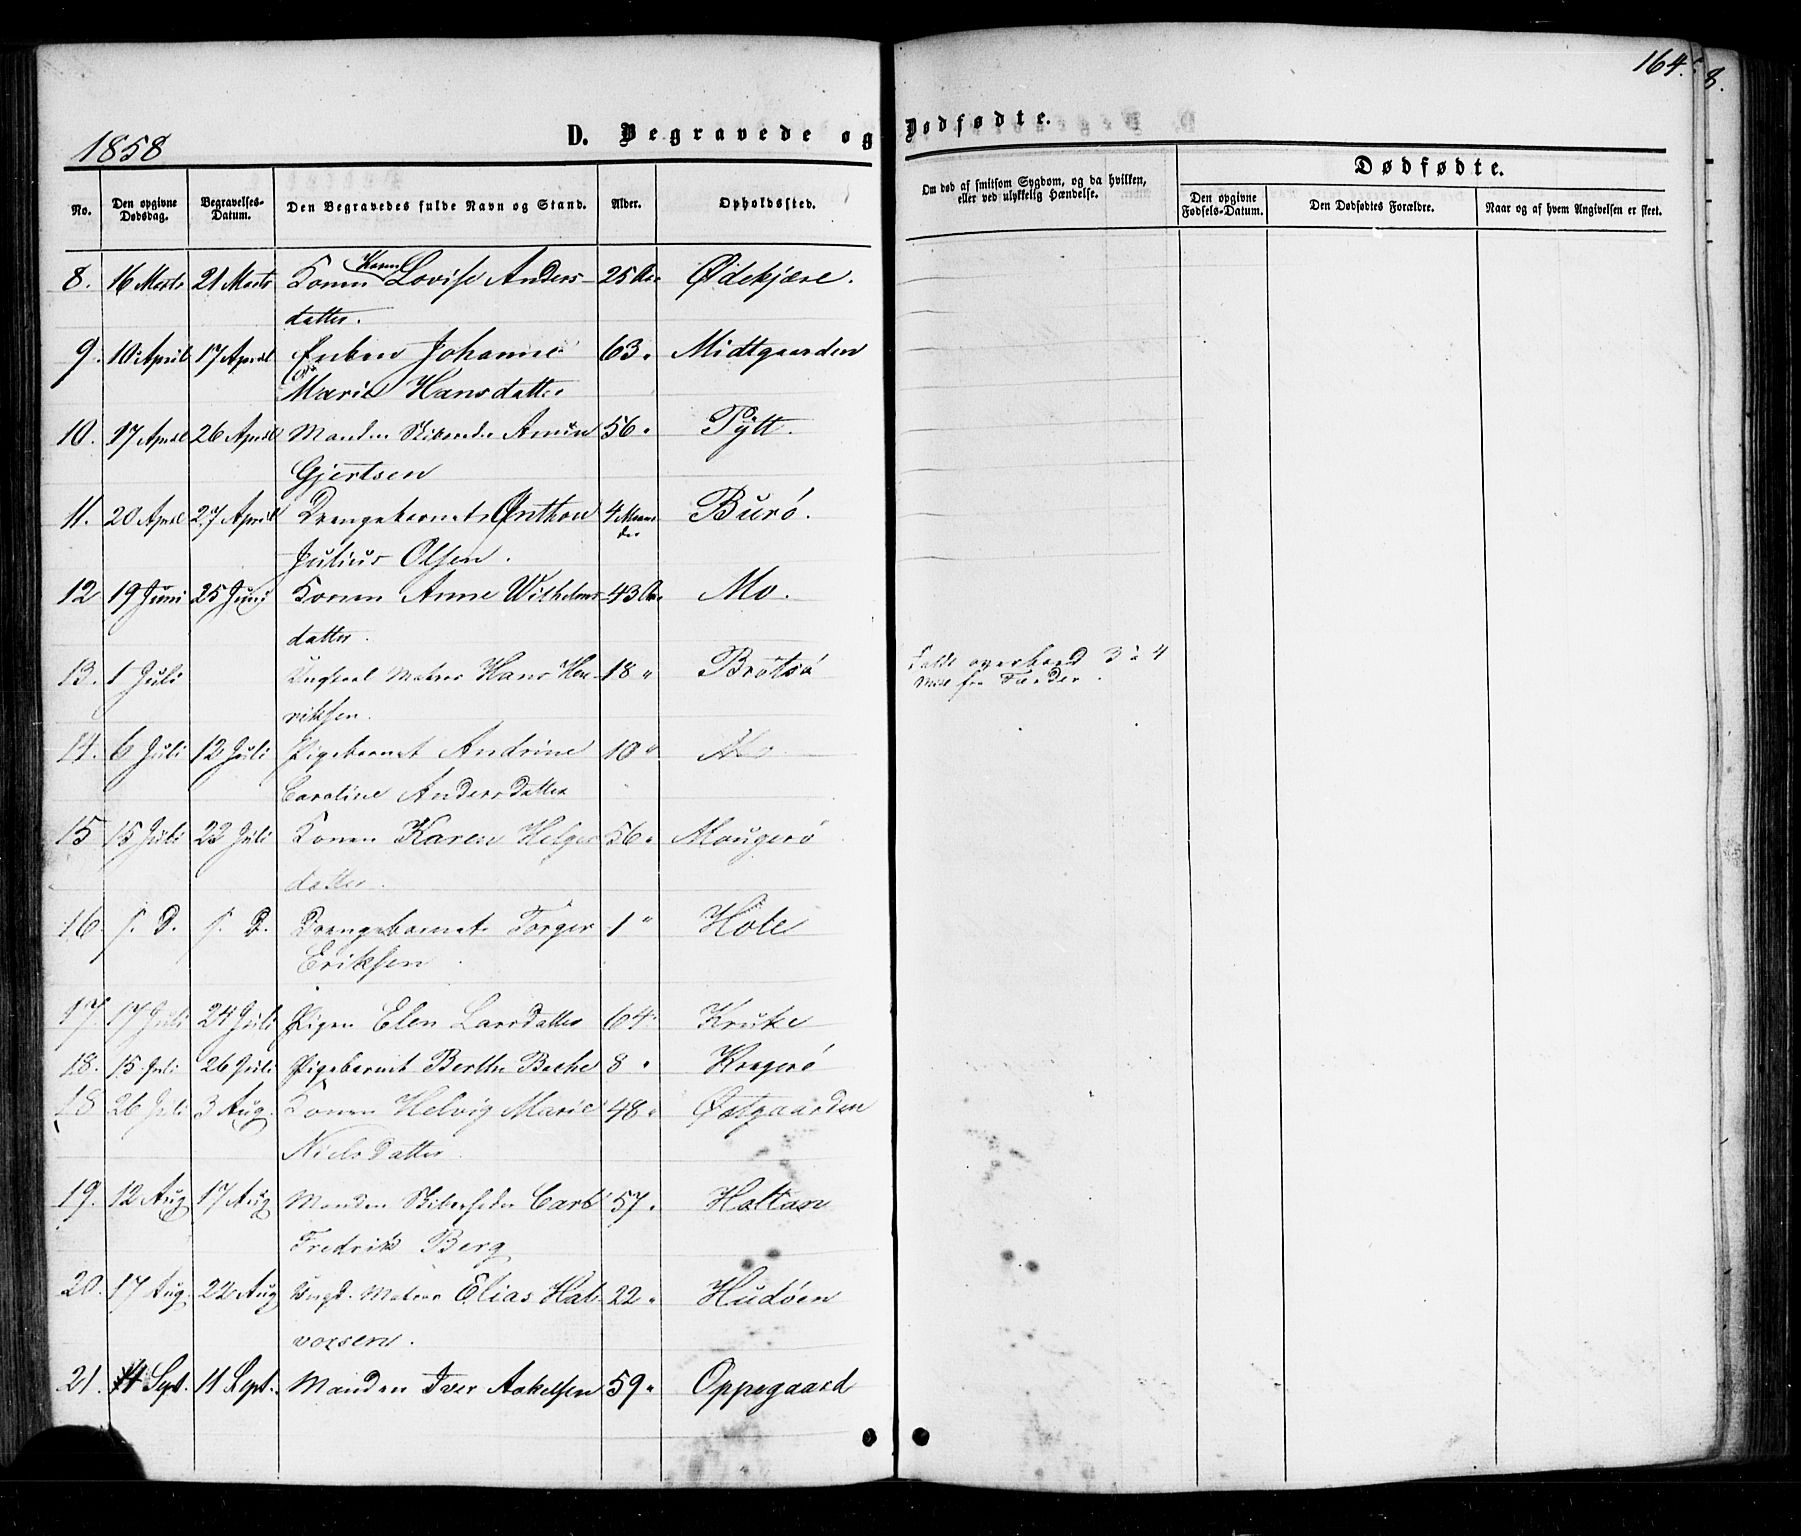 164.
8.
1858
D. Begravede og Dødfødte.
No. Den opgivne Dødsdag. Begravelses-Datum. Den Begravedes fulde Navn og Stand. Alder. Opholdssted.
Om død af smitsom Sygdom, og da hvilken, eller ved ulykkelig Hændelse.
Dødfødte.
Den opgivne Fødsels-Datum. Den Dødfødtes Forældre. Naar og af hvem Angivelsen er skeet.
8. 16 Marts 21 Marts Konen Karen Lovise Anders- 25 Aar Ødekjære.
datter.
9. 10 April 17 April Enken Johanne 63 " Midtgaarden
Marie Hansdatter
10. 17 April 26 April Manden Amun 56 " Pytt.
Gjertsen
11. 20 April 27 April Drengebarnet Anthon 4 Maaneder Burø.
Julius Olsen.
12 19 Juni 25 Juni Konen Anne Wilhelms- 43 Aar Mo.
datter.
13. 1 Juli Ungkarl Matros Hans Hen- 18 " Brøtsø
riksen.
Faldt overbord 3 à 4
Mile fra Færder.
14. 6 Juli 12 Juli Pigebarnet Andrine 10 " Mo
Caroline Andersdatter
15 15 Juli 22 Juli Konen Karen Helges 56 " Mougerø
datter.
16. s. D. s. D. Drengebarnet Torger 1 " Hole
Eriksen.
17. 17 Juli 24 Juli Pigen Elen Larsdatter 64 " Kruke
18. 15 Juli 26 Juli Pigebarnet Berthe Beche 8 " Kragerø
18 26 Juli 3 Aug. Konen Helvig Marie 48 " Østgaarden
Nielsdatter.
19. 12 Aug 17 Aug Manden Carl 57 " Holtan
Fredrik Berg
20. 17 Aug. 22 Aug Ungk. Matros Elias Hal- 22 " Hudøen
vorsen.
21. 4 Sept. 11 Sept. Manden Iver Aakelsen 59 " Oppegaard